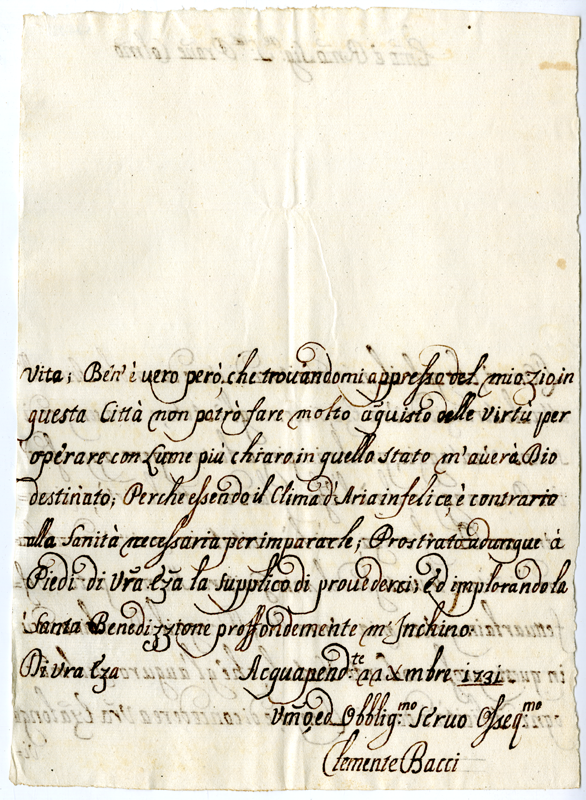 vita; Ben' è vero però, che trovandomi appresso del mio zio in
questa Città non potrò fare molto aquisto delle virtù per
operare con Lume più chiaro in quello stato m' averà Dio
destinato; Perche essendo il Clima d' Aria infelice, è contrario
alla Sanità necessaria per impararle; Prostrato adunque á
Piedi di Vrã Ezã la supplico di provederci; ed implorando la
Santa Benedizzione proffondemente m' Inchino.
Di Vra Eza Acquapend.te Xmbre 1731.
Vmõ, ed Obblig.mo Servo Osseq.mo
Clemente Bacci